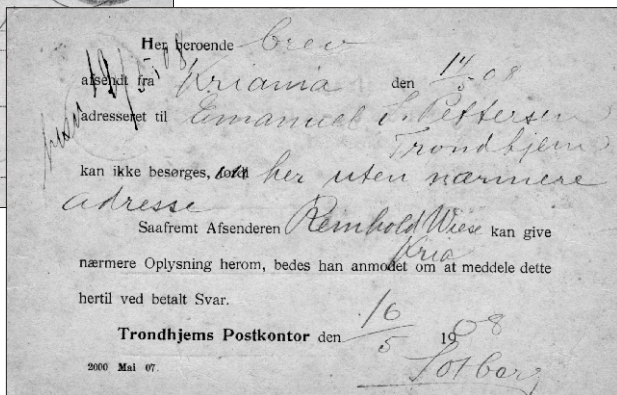 Her beroende brev
afsendt fra Kriania den 14/5 08
adresseret til Emanuel S. Pettersen
Trondhjem
kan ikke besørges, her uten nærmere
adresse
Saafremt Afsenderen Reinhold Wiese kan give
Kria
nærmere Oplysning herom, bedes han anmodet om at meddele dette
hertil ved betalt Svar.
Trondhjems Postkontor den 16/5 1908
2000 Mai 07.